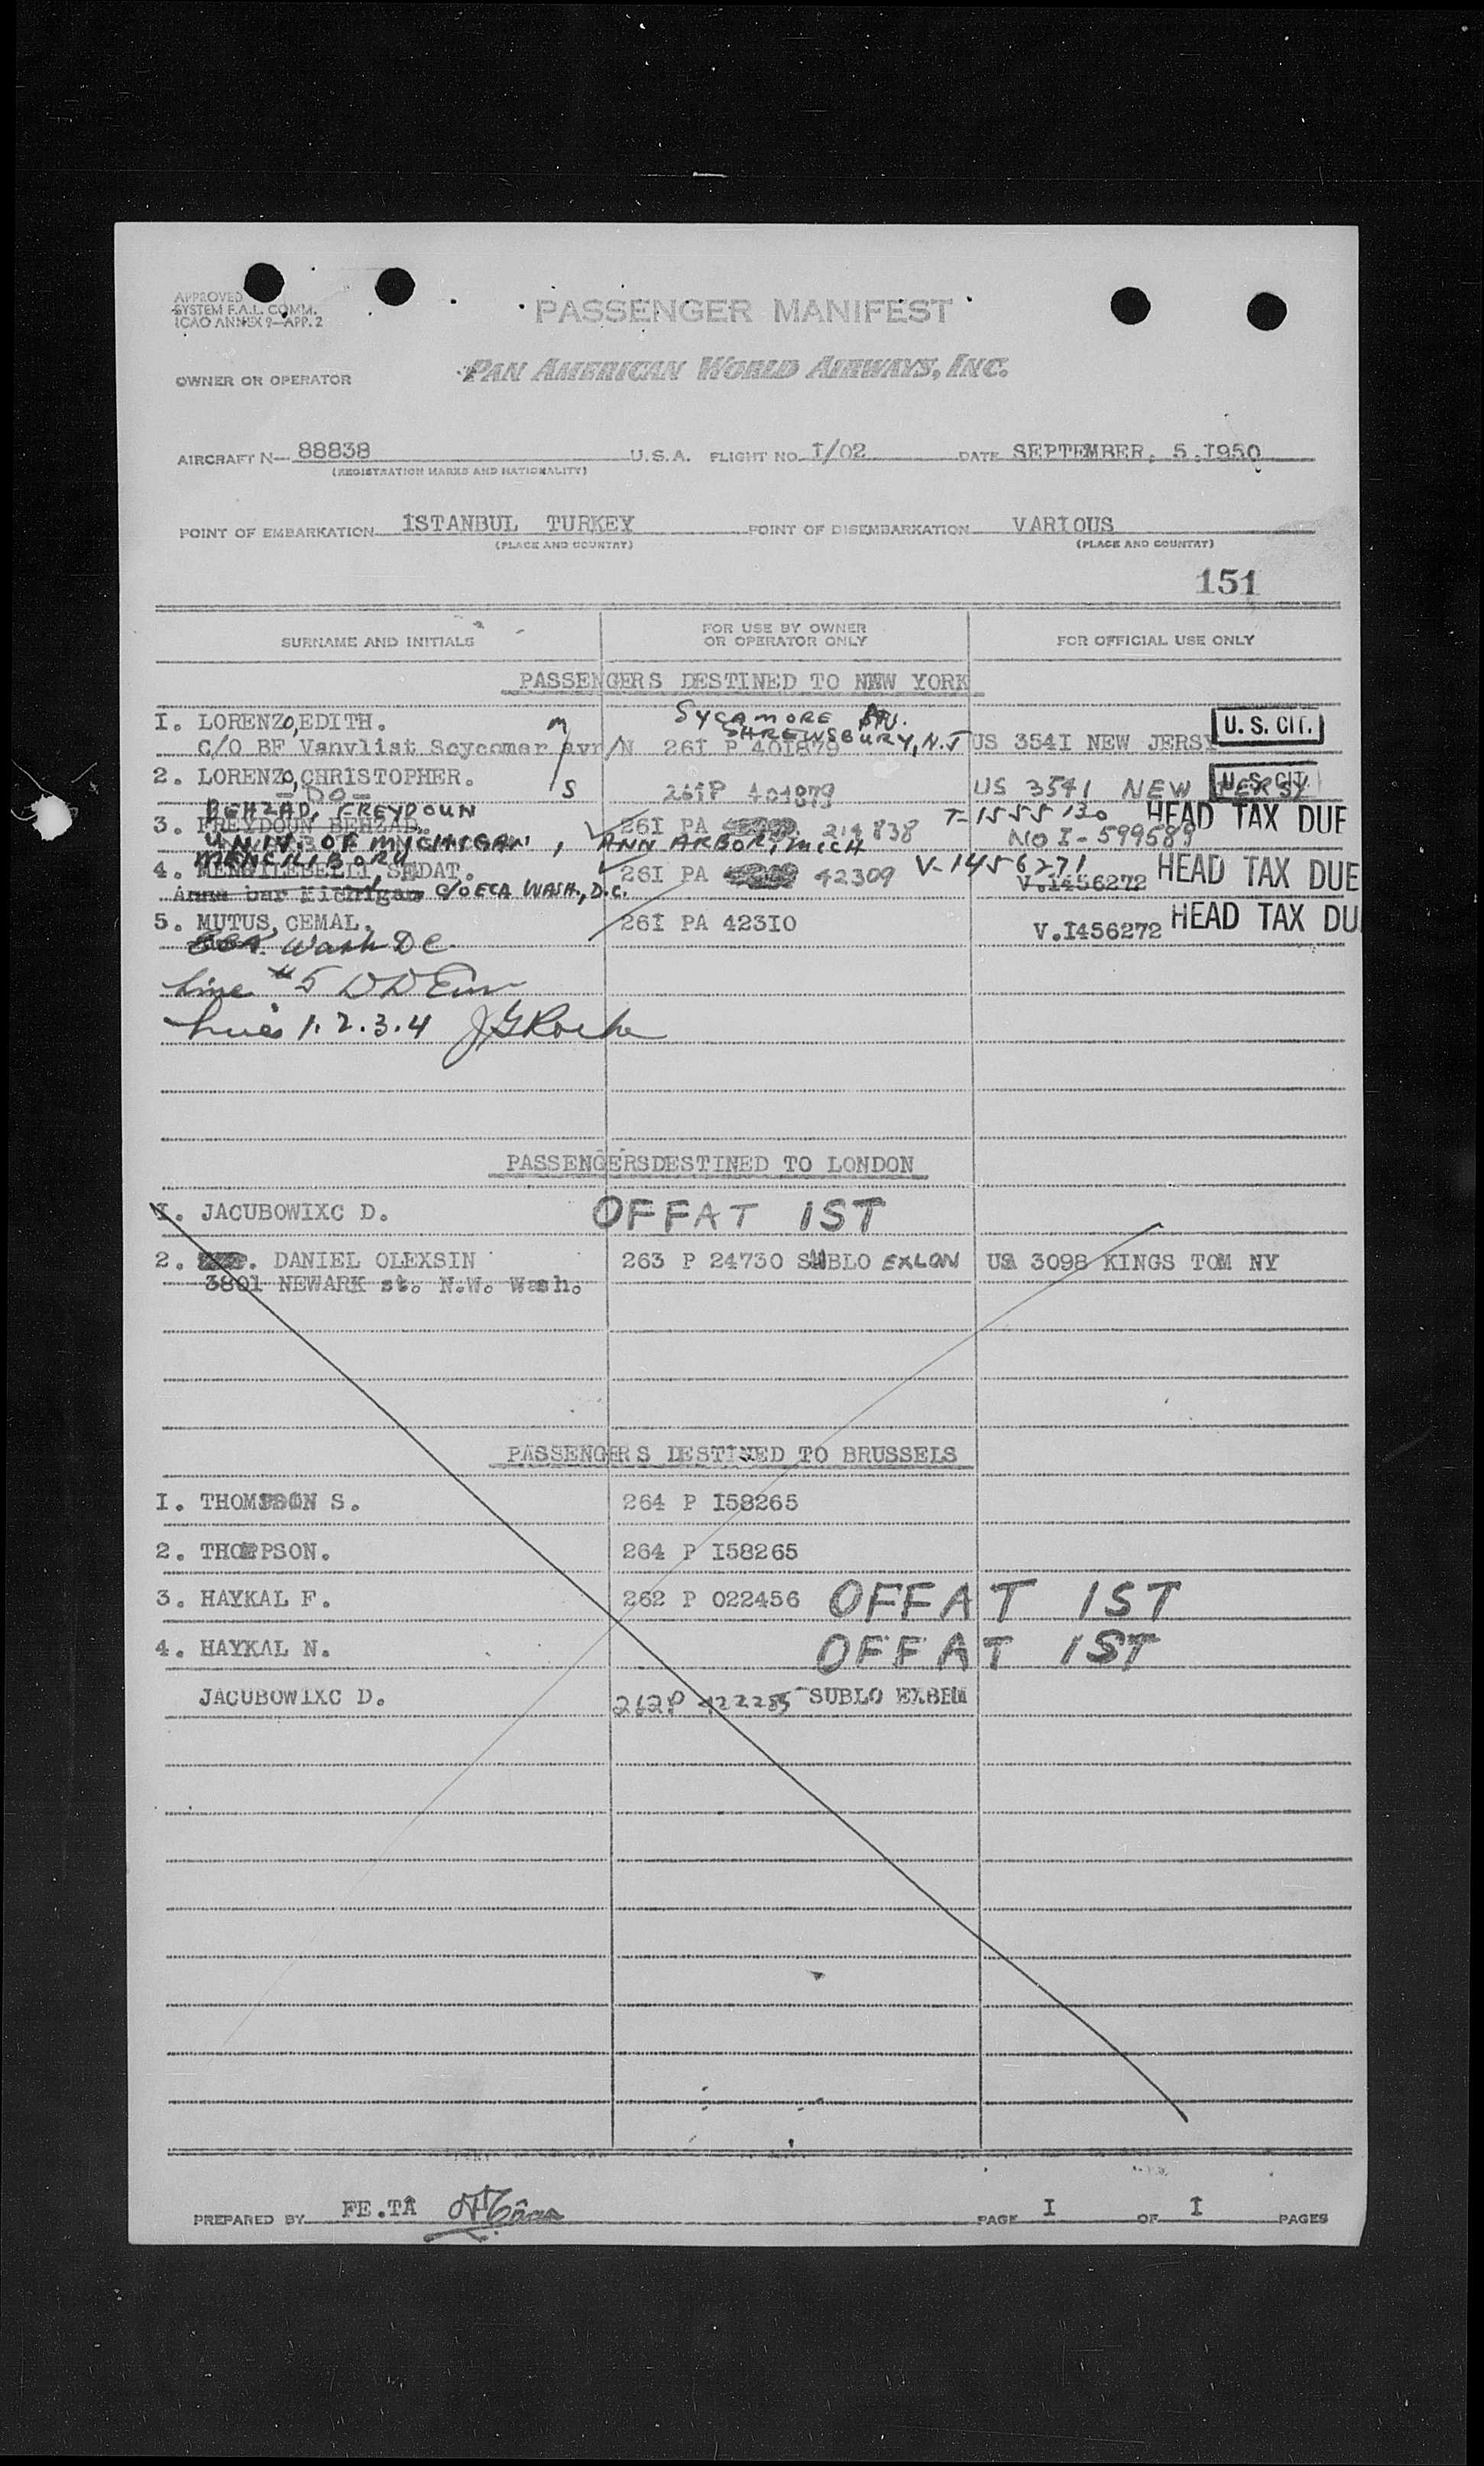 APPROVED
SYSTEM F.A.L. COMM.
ICAO ANNEX 9—APP. 2
PASSENGER MANIFEST
OWNER OR OPERATOR PAN AMERICAN WORLD AIRWAYS, INC.
AIRCRAFT N— 88838 U.S.A. FLIGHT NO. I/02 DATE SEPTEMBER, 5.I950
(REGISTRATION MARKS AND NATIONALITY)
POINT OF EMBARKATION ISTANBUL TURKEY POINT OF DISEMBARKATION VARIOUS
(PLACE AND COUNTRY) (PLACE AND COUNTRY)
151
SURNAME AND INITIALS FOR USE BY OWNER OR OPERATOR ONLY FOR OFFICIAL USE ONLY
PASSENGERS DESTINED TO NEW YORK
I. LORENZO,EDITH. M SYCAMORE AV. U. S. CIT.
SHREWSBURY, N.J
C/O BF Vanvlist Scycomer avr/N 26I P 40I879 US 354I NEW JERSY
2. LORENZO,CHRISTOPHER. S 261P 401879 US 3541 NEW JERSY U. S. CIT.
- DO -
BEHZAD, FREYDOUN T-1555130 HEAD TAX DUE
3. FREYDOUN BEHZAD. 26I PA 214838 NO I-599589
UNIV. OF MYCHIGAN, ANN ARBOR, MICH
4. SEDAT. 26I PA 42309 V-1456271 V.I456272 HEAD TAX DUE
Anna bar Michigan C/O ECA WASH., D.C.
5. MUTUS, CEMAL. 26I PA 423IO V.I456272 HEAD TAX DU
Wash DC
Line #5
Lines 1.2.3.4 JGRoche
PASSENGERSDESTINED TO LONDON
I. JACUBOWIXC D. OFFAT IST
2. DANIEL OLEXSIN 263 P 24730 SUBLO EXLON US 3098 KINGS TOM NY
3801 NEWARK st. N.W. Wash.
PASSENGERS DESTINED TO BRUSSELS
I. THOMPSON S. 264 P I58265
2. THOMPSON. 264 P I58265
3. HAYKAL F. 262 P 022456 OFFAT IST
4. HAYKAL N. OFFAT IST
JACUBOWIXC D. 262P 422255 SUBLO EXBRU
PREPARED BY FE.TA PAGE I OF I PAGES